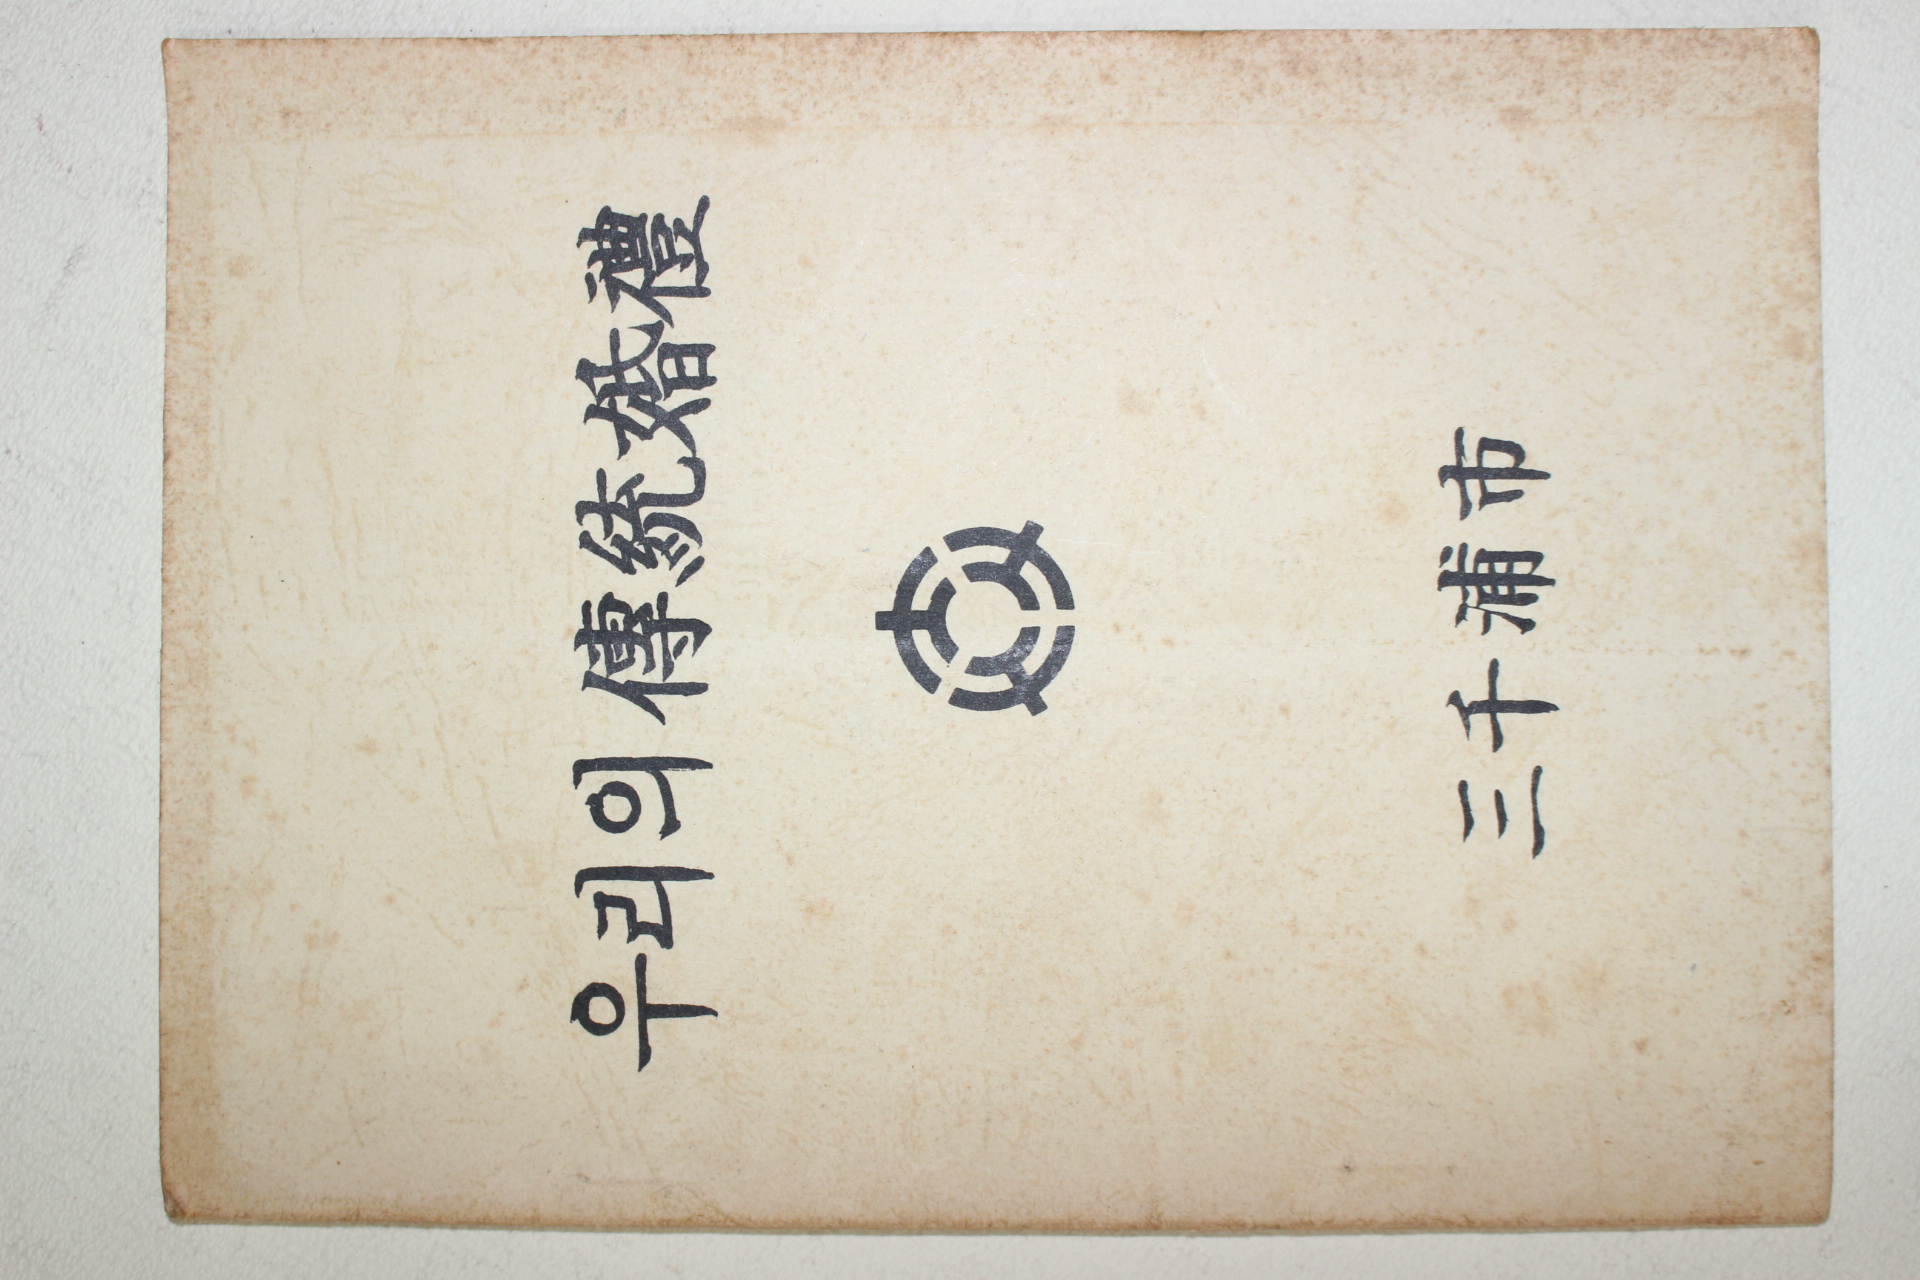 우리의 傳統婚禮
三千浦市